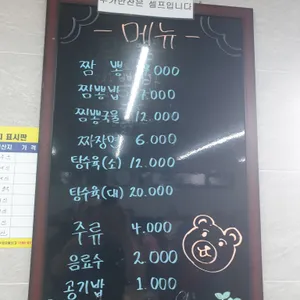 추가반찬은 셀프입니다
- 메뉴 -
짬뽕 7.000
짬뽕밥 7.000
짬뽕국물 12.000
짜장면 6.000
탕수육(소) 12.000
탕수육(대) 20.000
주류 4.000
음료수 2.000
공기밥 1.000
표시판
가격